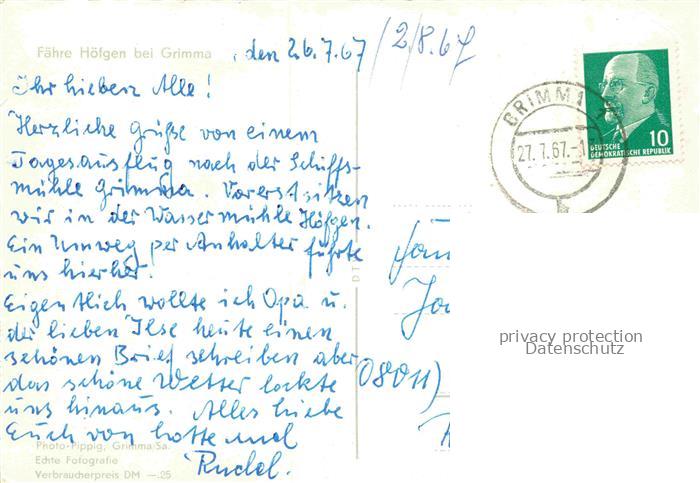 Fähre Höfgen bei Grimma
, den 26.7.67 /2/8.67
Ihr lieben Alle!
Herzliche Grüße von einem
Tagesausflug nach der Schiffs-
mühle Grimma. Vorerst sitzen
wir in der Wassermühle Höfgen.
Ein Umweg per Anhalter führte
uns hierher.
Eigentlich wollte ich Opa u.
der lieben Ilse heute einen
schönen Brief schreiben aber
das schöne Wetter lockte
uns hinaus. Alles Liebe
Euch von Lotte und
Rudel.
Photo-Pippig, Grimma/Sa.
Echte Fotografie
Verbraucherpreis DM —.25
GRIMMA
27.7.67.-1
DEUTSCHE
DEMOKRATISCHE REPUBLIK
10
Fam
(8011)
privacy protection
Datenschutz